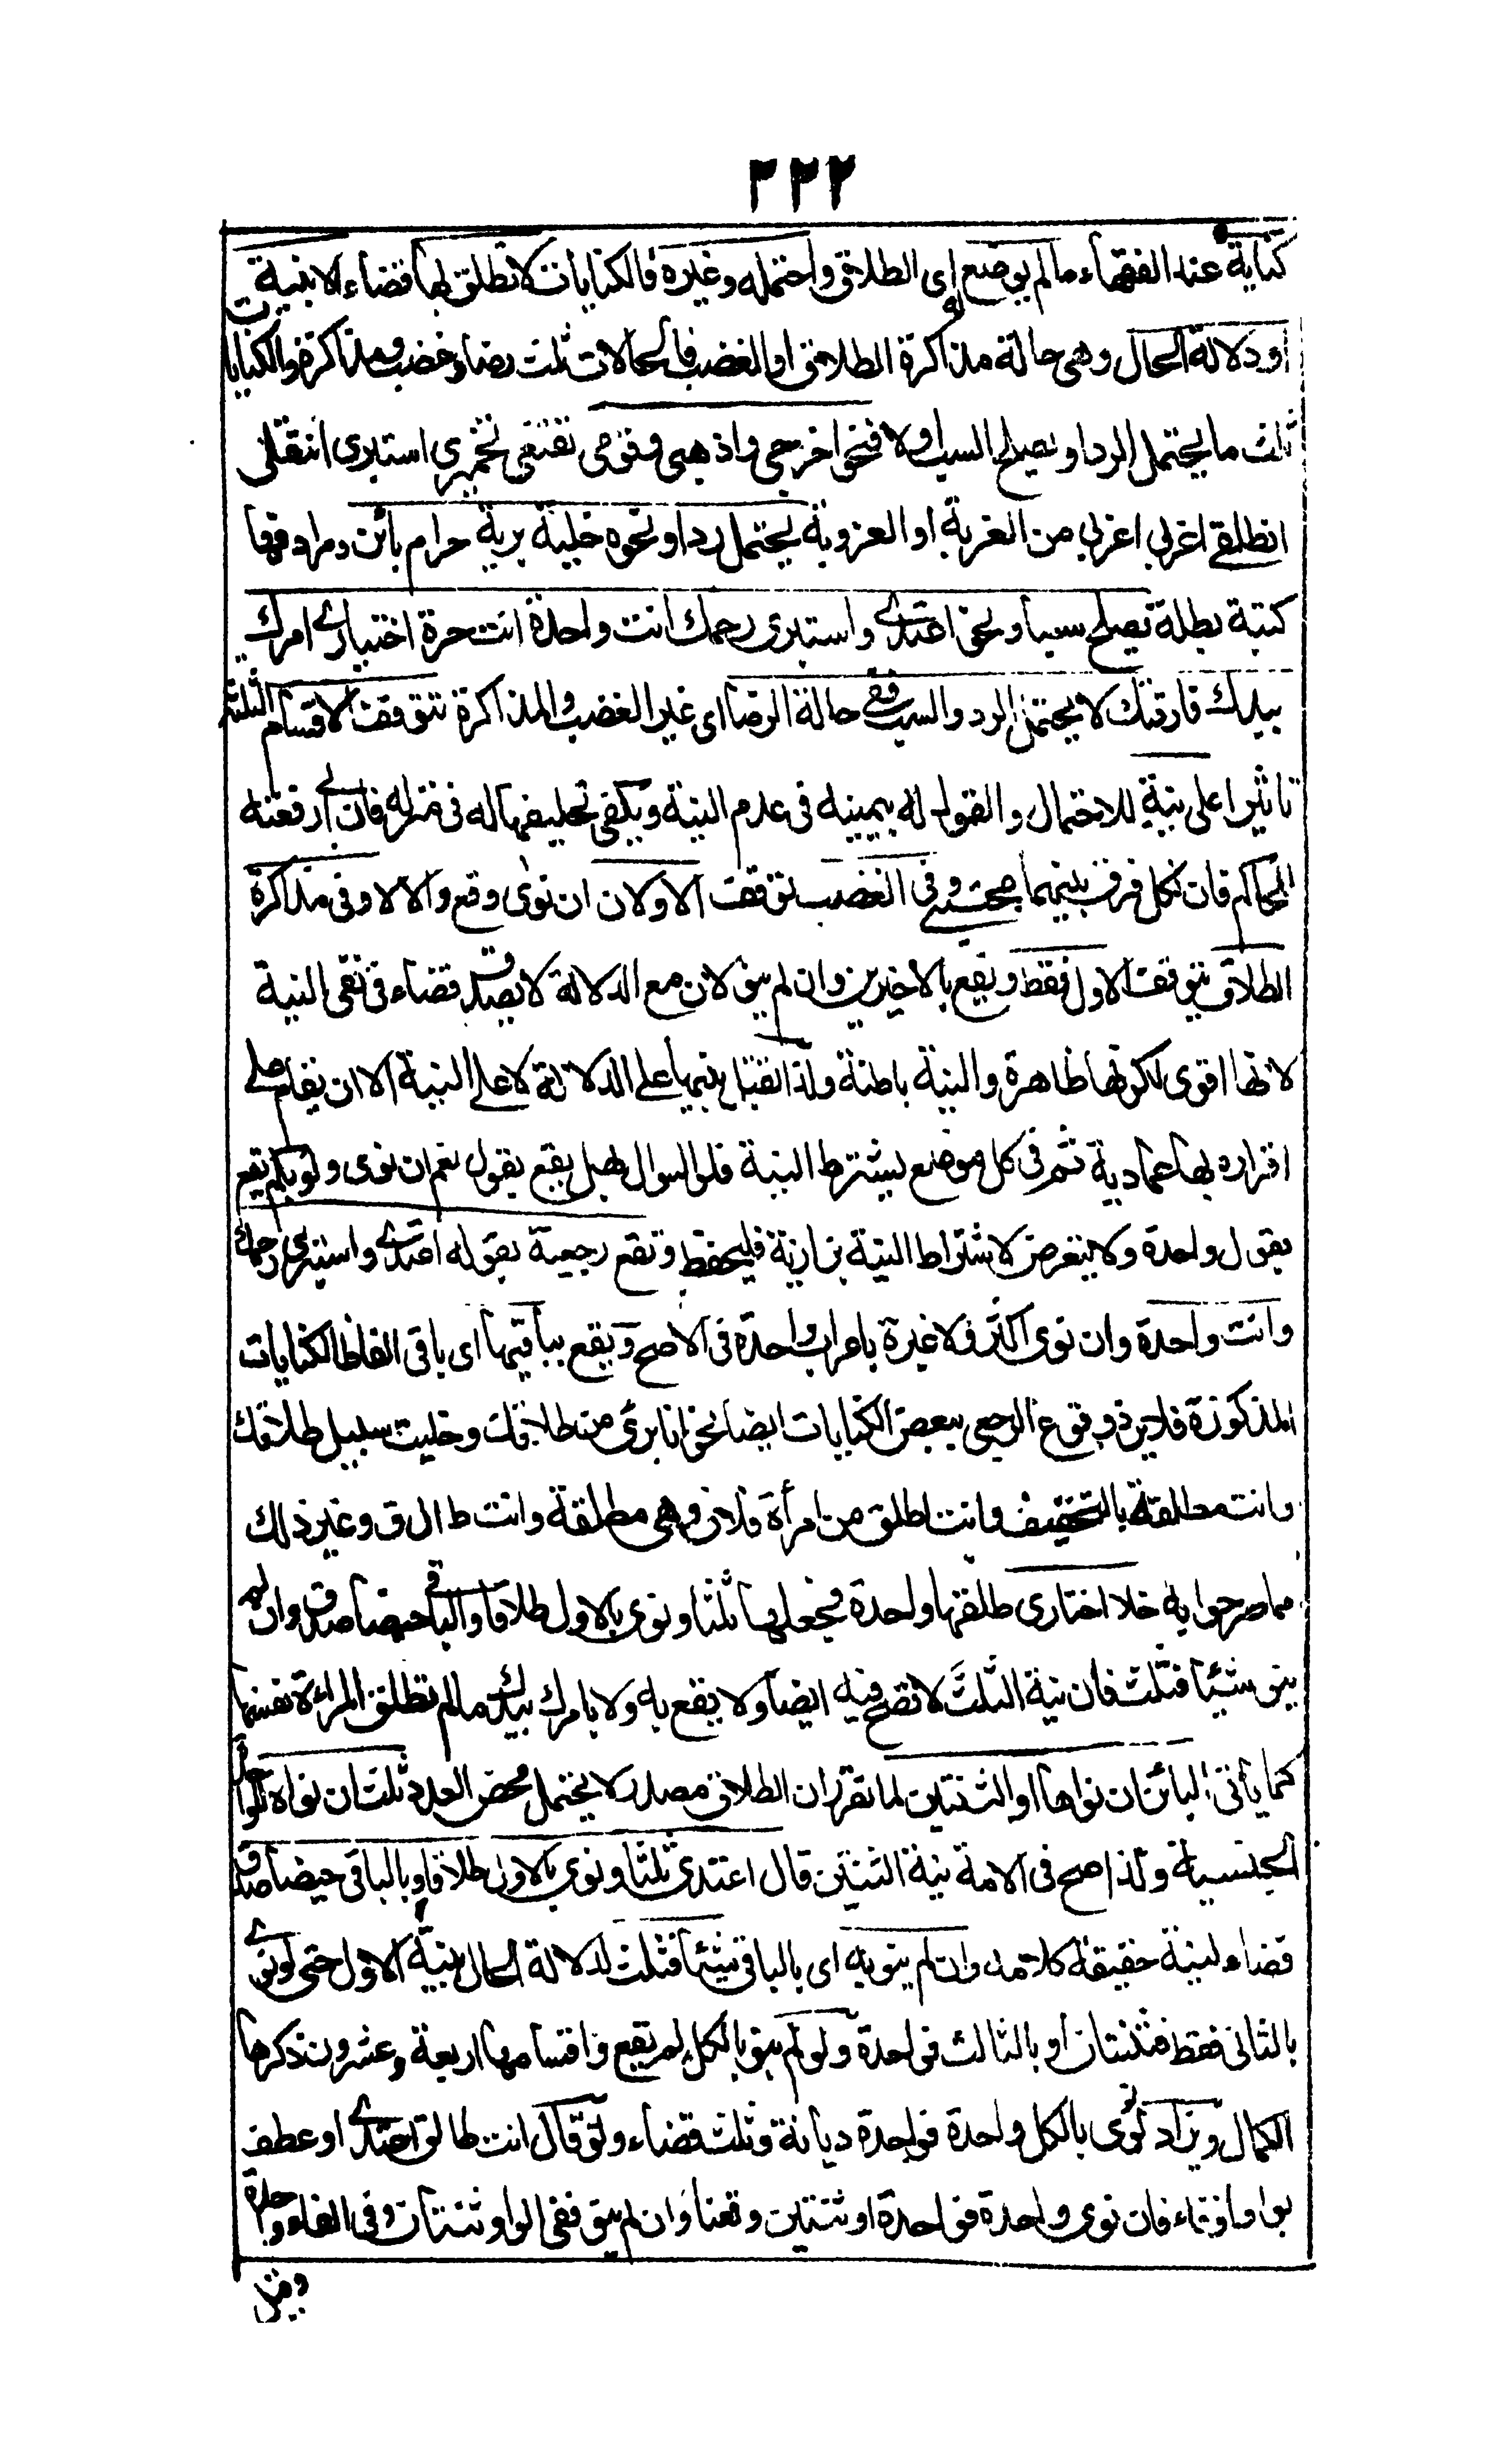 ٢٢٢
كناية عند الفقهاء ما لم يوضع له اى الطلاق واحتمله وغيره فالكنايات لا تطلق بها قضاء الا بنية
او دلالة الحال وهى حالة مذاكرة الطلاق او الغضب فالحالات ثلث رضا وغضب ومذاكرة والكنايات
ثلث ما يحتمل الرد او يصلح للسب او لا فنحو اخرجى واذهبى وقومى تقنعى تخمرى استترى انتقلى
انطلقى اغربى اعزبى من الغربة او العزوبة يحتمل ردا ونحوه خلية برية حرام بائن ومرادفها
كبتة بتلة يصلح سبا ونحو اعتدى واستبرى رحمك انت واحدة انت حرة اختيارى امرك
بيدك فارقتك لا يحتمل الرد والسب ففى حالة الرضا اى غير الغضب والمذاكرة تتوقف الاقسام الثلثة
تاثيرا على نية للاحتمال والقول له بيمينه فى عدم النية ويكفى تحليفها له فى منزله فان ابى رفعته
للحاكم فان نكل فرق بينهما مجتبى وفى الغضب توقف الاولان ان نوى وقع والا لا وفى مذاكرة
الطلاق يتوقف الاول فقط ويقع بالاخيرين وان لم ينو لان مع الدلالة لا يصدق قضاء فى نفى النية
لانها اقوى لكونها ظاهرة والنية باطنة ولذا تقبل بينتها على الدلالة لا على النية الا ان يقام على
اقراره بها عمادية ثم فى كل موضع يشترط النية فلو السوال بهل يقع يقول نعم ان نوى ولو بكم يقع
يقول واحدة ولا يتعرض لاشتراط النية بزازية فليحفظ وتقع رجعية بقوله اعتدى واستبرى رحمك
وانت واحدة وان نوى اكثر ولا عبرة باعراب واحدة فى الاصح ويقع بباقيها اى باقى الفاظ الكنايات
المذكورة فلا يرد وقوع الرجعى ببعض الكنايات ايضا نحو انا برىء من طلاقك وخليت سبيل طلاقك
وانت مطلقة بالتخفيف وانت اطلق من امرأة فلان وهى مطلقة وانت ط ال ق وغير ذلك
مما صرحوا به خلا اختارى طلقها واحدة فجعلها ثلثا ونوى بالاول طلاقا وبالباقى حيضا صدق وان لم
ينو شيئا فثلث فان نية الثلث لا تصح فيه ايضا ولا يقع به ولا بامرك بيدك ما لم تطلق المراة نفسها
كما يأتى البائن ان نواها او الثنتين لما تقرر ان الطلاق مصدر لا يحتمل محض العدد وثلث ان نواه للواحد
الجنسية ولذا صح فى الامة نية الثنتين قال اعتدى ثلثا ونوى بالاول طلاقا وبالباقى حيضا صدق
قضاء لنية حقيقة كلامه وان لم ينو به اى بالباقى شيئا فثلث لدلالة الحال بنية الاول حتى لو نوى
بالثانى فقط فثنتان او بالثالث فواحدة ولو لم ينو بالكل لم يقع واقسامها اربعة وعشرون ذكرها
الكمال ويزاد نوى بالكل واحدة فواحدة ديانة وثلث قضاء ولو قال انت طالق اعتدى او عطف
بواو او فاء فان نوى واحدة فواحدة او ثنتين وقعتا وان لم ينو ففى الواو ثنتان وفى الفاء واحدة